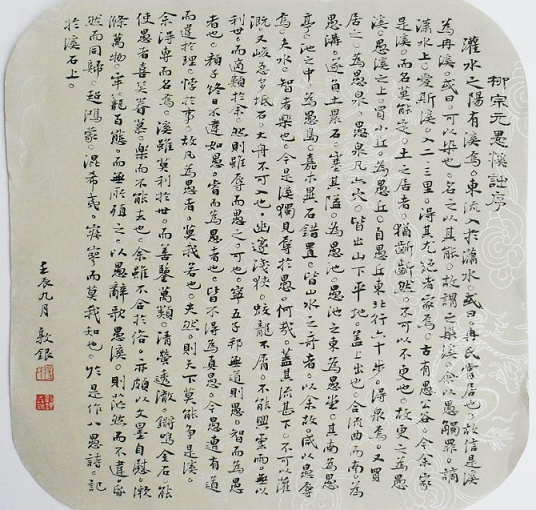 柳宗元愚溪詩序
灌水之陽有溪焉。東流入於瀟水。或曰。冉氏嘗居也。故信是溪
為冉溪。或曰。可以染也。名之以其能。故謂之染溪。余以愚觸罪。謫
瀟水上。愛斯溪。入二三里。得其尤絕者家焉。古有愚公谷。今余家
是溪。而名莫能定。土之居者。猶齗齗然。不可以不更也。故更之為愚
溪。愚溪之上。買小丘。為愚丘。自愚丘東北行六十步。得泉焉。又買
居之。為愚泉。愚泉凡六穴。皆出山下平地。蓋上出也。合流曲而南。為
愚溝。遂負土累石。塞其隘。為愚池。愚池之東為愚堂。其南為愚
亭。池之中。為愚島。嘉木異石錯置。皆山水之奇者。以余故。咸以愚辱
焉。夫水。智者樂也。今是溪獨見辱於愚。何哉。蓋其流甚下。不可以灌
溉。又峻急多坻石。大舟不可入也。幽邃淺狹。蛟龍不屑。不能興雲雨。無以
利世。而適類於余。然則雖辱而愚之。可也。寧武子邦無道則愚。智而為愚
者也。顏子終日不違如愚。睿而為愚者也。皆不得為真愚。今愚遭有道
而違於理。悖於事。故凡為愚者。莫我若也。夫然。則天下莫能爭是溪。
余得專而名焉。溪雖莫利於世。而善鑒萬類。清瑩透澈。鏘鳴金石。能
使愚者喜笑眷慕。樂而不能去也。余雖不合於俗。亦頗以文墨自慰。漱
滌萬物。牢籠百態。而無所避之。以愚辭歌愚溪。則茫然而不違。昏
然而同歸。超鴻蒙。混希夷。寂寥而莫我知也。於是作八愚詩。記
於溪石上。
壬辰九月 敦銀